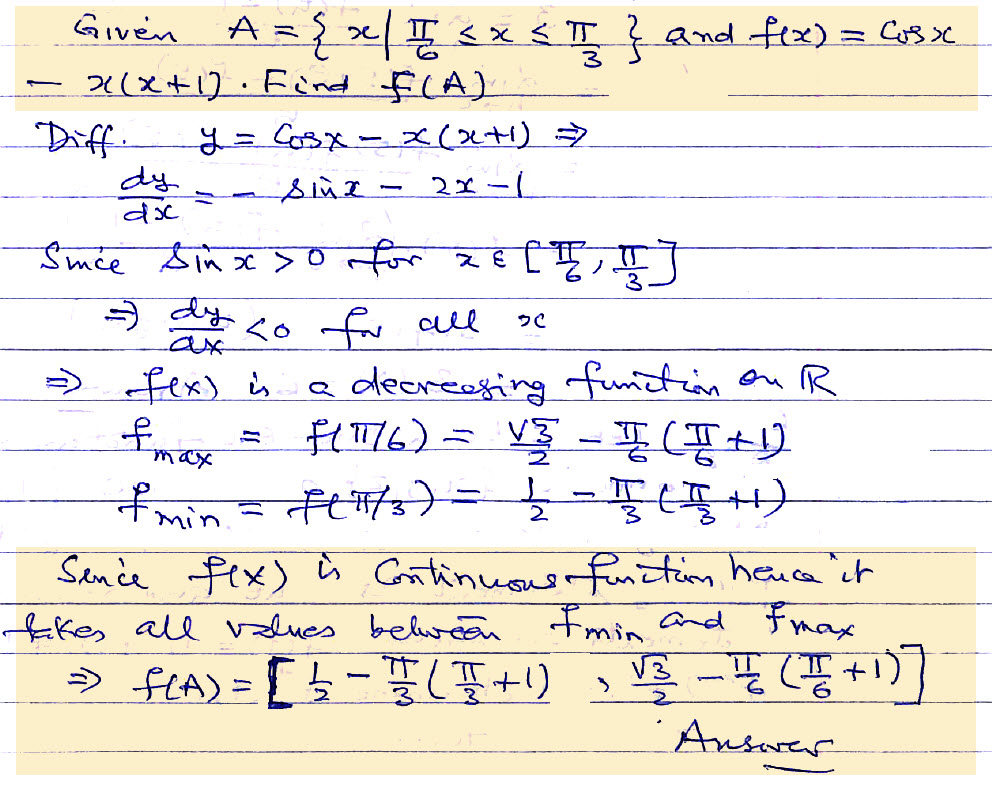 Given A = { x | π/6 ≤ x ≤ π/3 } and f(x) = Cosx
- x(x+1). Find f(A)
Diff. y = Cosx - x(x+1) ⇒
dy/dx = - sinx - 2x - 1
Since Sinx > 0 for x ∈ [π/6, π/3]
⇒ dy/dx < 0 for all x
⇒ f(x) is a decreasing function on ℝ
f max = f(π/6) = √3/2 - π/6 (π/6 + 1)
f min = f(π/3) = 1/2 - π/3 (π/3 + 1)
Sence f(x) is Continuous function, hence it
takes all values between f min and f max
⇒ f(A) = [ 1/2 - π/3 (π/3 + 1) , √3/2 - π/6 (π/6 + 1) ]
Answer